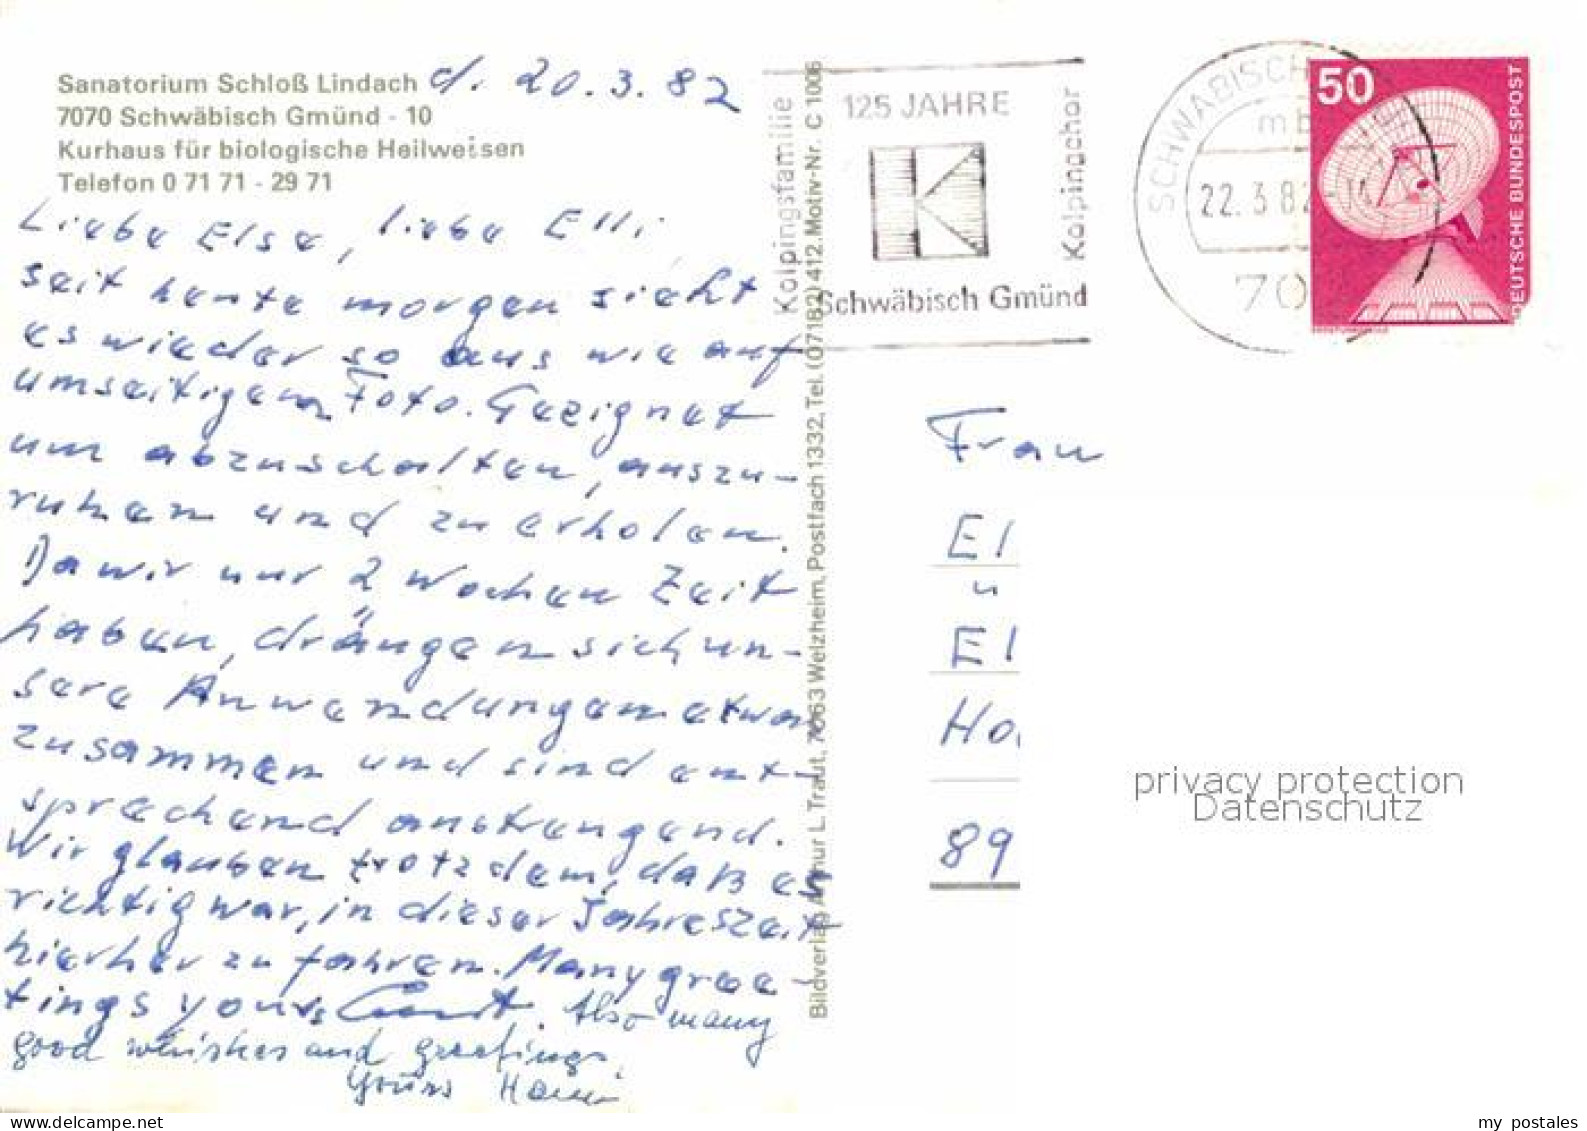 Sanatorium Schloß Lindach
d. 20.3.82
7070 Schwäbisch Gmünd - 10
Kurhaus für biologische Heilweisen
Telefon 0 71 71 - 29 71
Liebe Else, liebe Elli,
seit heute morgen sieht
es wieder so aus wie auf
umseitigem Foto. Geeignet
um abzuschalten, auszu-
ruhen und zu erholen.
Da wir nur 2 Wochen Zeit
haben, drängen sich un-
sere Anwendungen etwas
zusammen und sind ent-
sprechend anstrengend.
Wir glauben trotzdem, daß es
richtig war, in dieser Jahreszeit
hierher zu fahren. Many gree-
tings yours
Also many
good whishes and greetings,
yours
Bildverlag Arthur L. Traut, 7063 Welzheim, Postfach 1332, Tel. (07182) 412. Motiv-Nr. C 1006
Kolpingsfamilie
125 JAHRE
Kolpingchor
Schwäbisch Gmünd
SCHWÄBISCH
mb
22.3.82
70
50
DEUTSCHE BUNDESPOST
Frau
El
u
El
Ho
89
privacy protection
Datenschutz
my postales